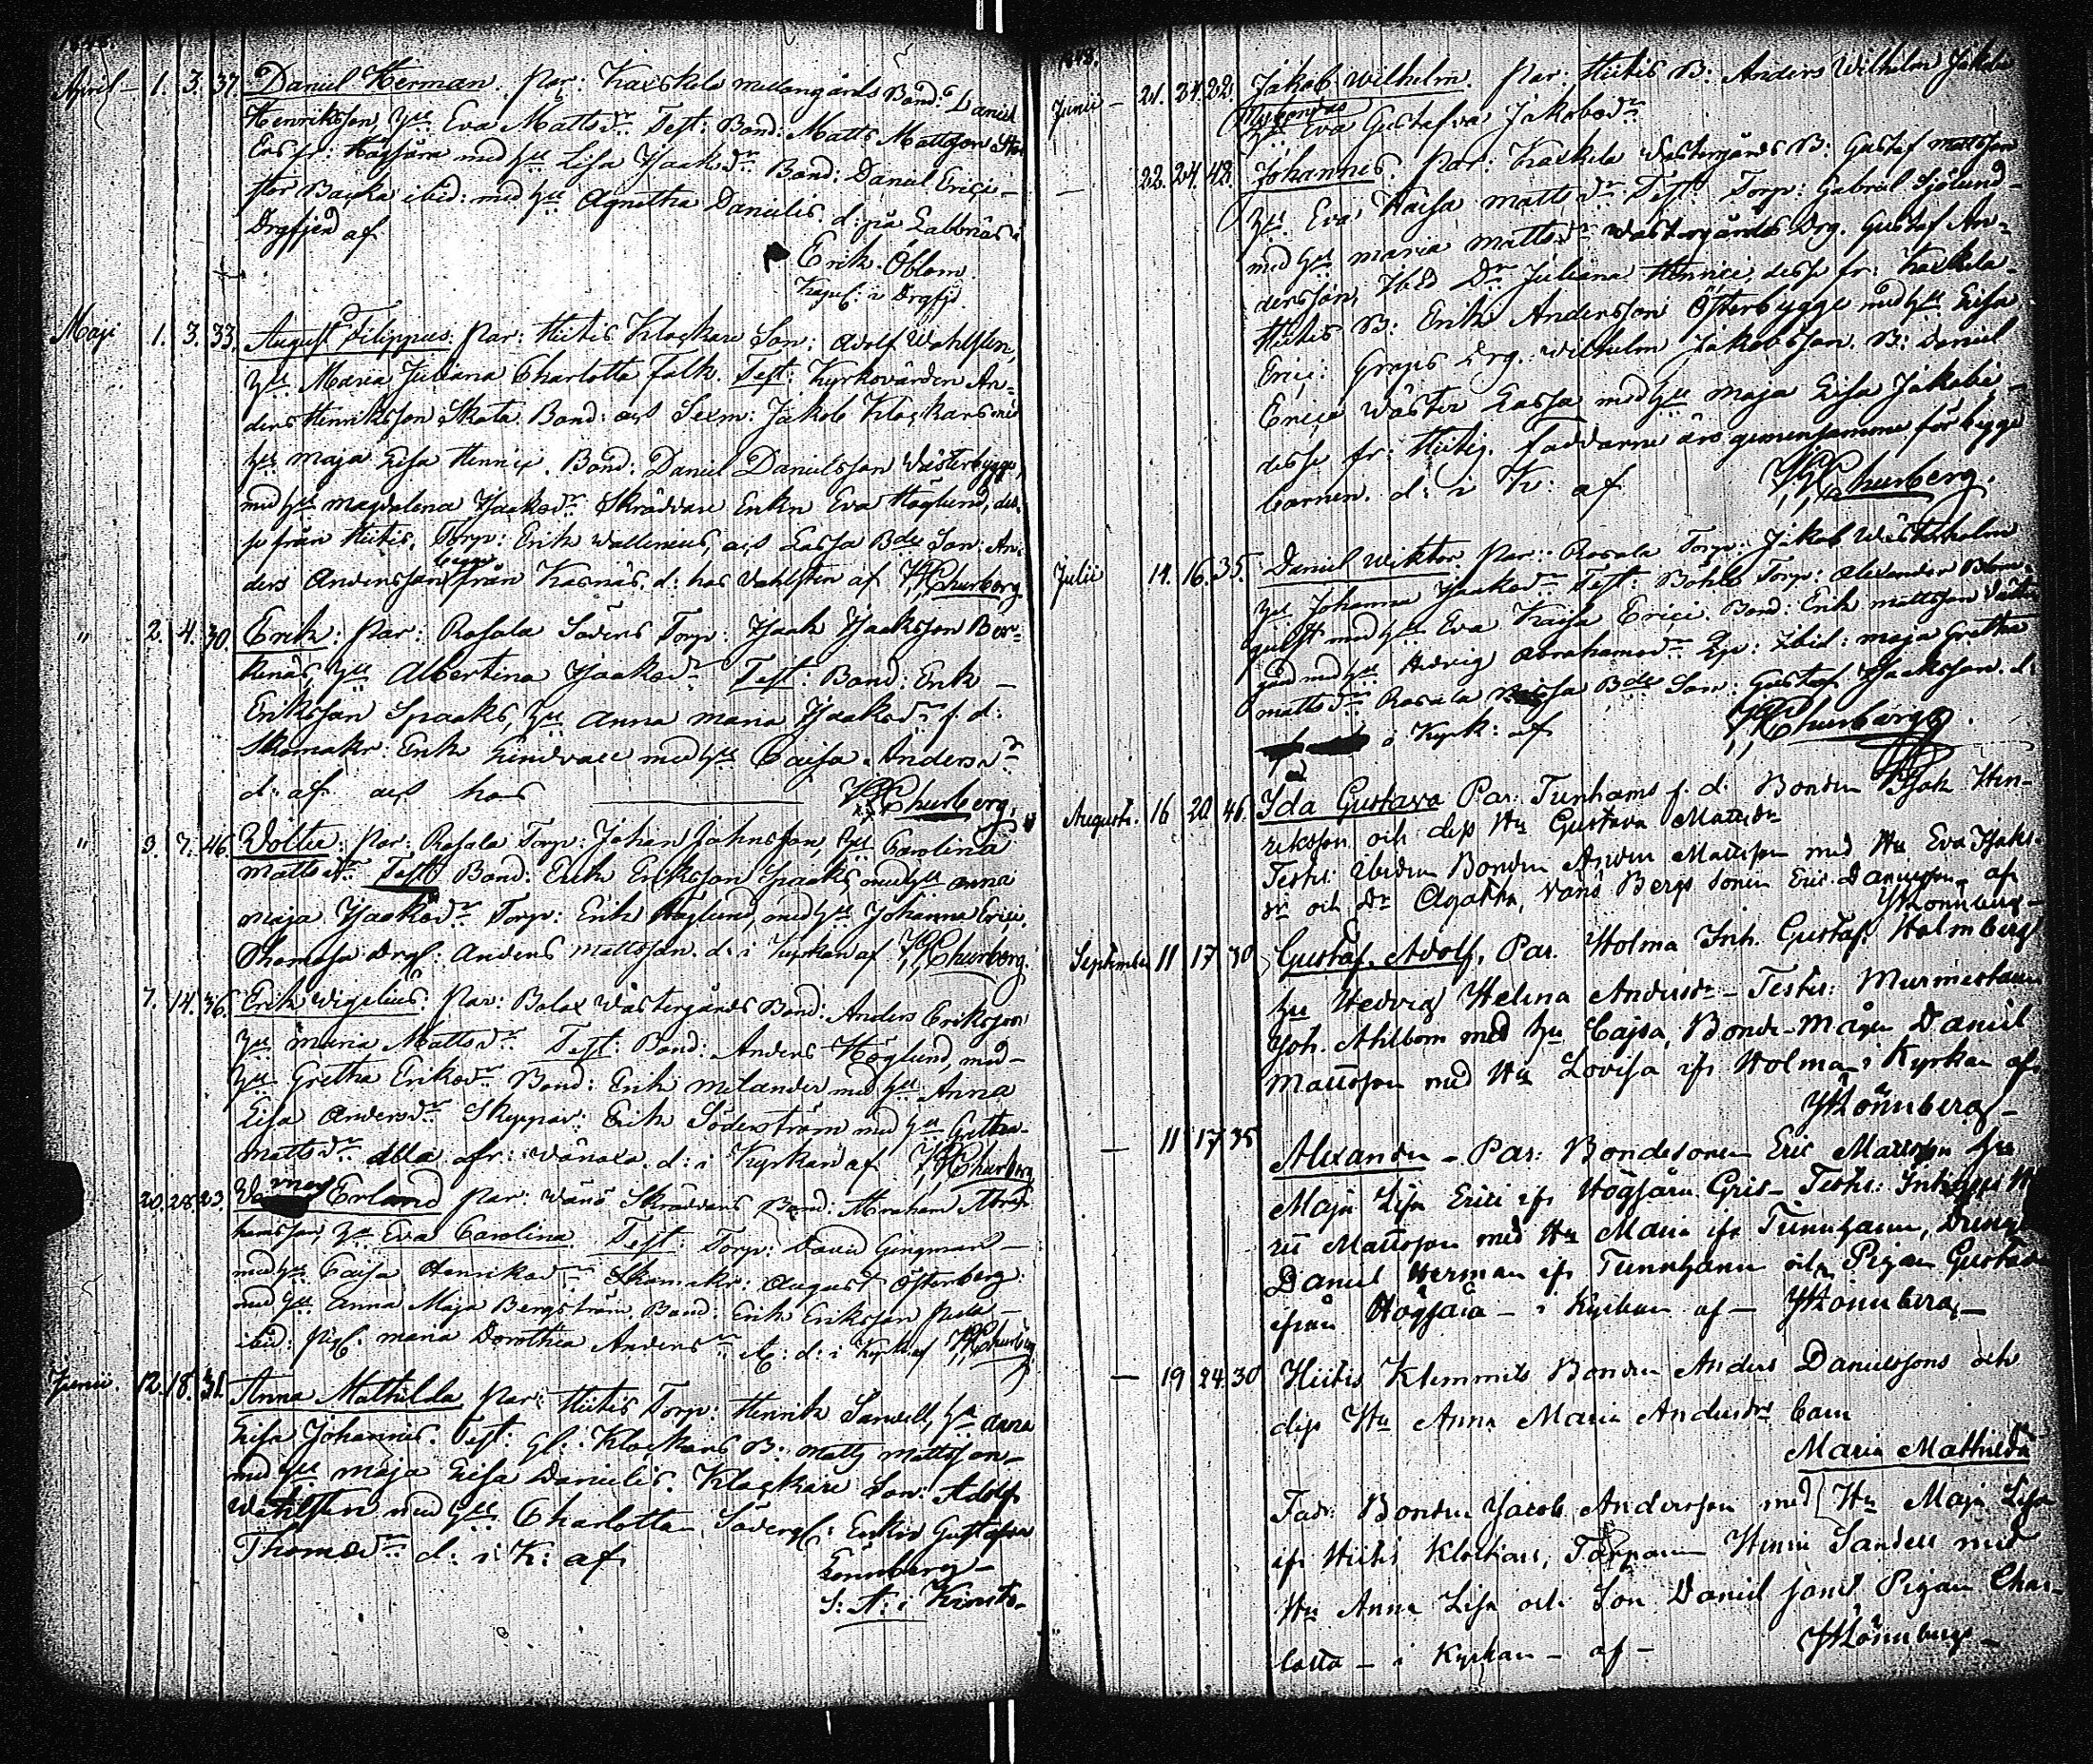 1848.
April – 1. 3. 37. Daniel Herman. Par: Kaxskela mellangårds Bond: Daniel
Henriksson, Hu Eva Mattsdr Test: Bond: Matts Mattsson
fr: Högsåra med Hu Lisa Isaksdr Bond: Daniel Erici –
Backa ibid: med Hu Agnetha Danielis. d: på Labbnäs i
Drgfjerd af
Erik Öblom.
Kapel: i Drgfjd.
Maji 1. 3. 33. August Filippus. Par: Hitis Klockare Son: Adolf Wahlsten,
Hu Maria Juliana Charlotta Falk. Test: Kyrkovärden An-
ders Henriksson Skata. Bond: och Sexm: Jakob Klockars med
Hu Maja Lisa Henrici. Bond: Daniel Danielsson Västerbygge,
med Hu Magdalena Isaksdr Skräddare Enkn Eva Höglund, des-
se från Hitis, Torp: Erik Wallenius, och Lassa Bde Son: An-
ders Andersson begge från Kasnäs. d: hos Vahlsten af Churberg
" 2. 4. 30. Erik: Par: Rosala Söders Torp: Isaak Isaksson Ber-
kenäs, Hu Albertina Isaksdr Test: Bond: Erik –
Eriksson Spaaks, Hu Anna Maria Isaksdr f. d:
Skomakr. Erik Lindvall med Hu Caisa Andersdr
d: af och hos Churberg.
" 3. 7. 46. Wolter: Par: Rosala Torp: Johan Johnsson, Hu Carolina
Mattsdr Test: Bond: Erik Eriksson Spaaks, med Hu Anna
Maja Isaksdr Torp: Erik Höglund, med Hu Johanna Erici.
Thomasa drgl: Anders Mattsson. d: i Kyrkan af Churberg.
7. 14. 36. Erik Vigelius: Par: Bolax Västergårds Bond: Anders Eriksson
Hu Maria Mattsdr. Test: Bond: Anders Höglund, med –
Hu Gretha Eriksdr. Bond: Erik Melander med Hu Anna
Lisa Andersdr Skeppar: Erik Söderström med Hu Gretha
Mattsdr alla fr: Vänoxa. d: i Kyrkan af Churberg
20. 28. 23. Werner Erland Par: Vänö Skräddars Bond: Abraham Abra-
hamsson, Hu Eva Carolina. Test: Torp: David Gingman –
med Hu Caisa Henriksdr Skomakr: August Österberg
med Hu Anna Maja Bergström. Bond: Erik Eriksson
ibid: Pig: Maria Dorothea Andersdr d: i Kyrk: af Churberg
Junii. 12. 18. 31. Anna Mathilda Par: Hitis Torp: Henrik Sandell, Hu Anna
Lisa Johannis. Test: Gl: Klockars B: Matts Mattsson –
med Hu Maja Lisa Danielis. Klockare Son: Adolf
Wahlsten med Hu Charlotta Enkn Gustafva
Thomædr d: i K: af
Lönnberg –
S: A: i Kimito
1848.
Junii – 21. 24. 22. Jakob Wilhelm. Par: Hitis B: Anders Wilhelm Jakobs
Hu Eva Gustafva Jakobsdr
– 22. 24. 42. Johannes. Par: Kaxkela Västergårds B: Gustaf Mattsson
Hu Eva Kaisa Mattsdr Test: Torp: Gabriel Sjölund –
med Hu Maria Mattsdr Västergårds Drg. Gustaf An-
dersson, Ibid Dr Juliana Henrici desse fr: Kaxkela –
Hitis B: Erik Andersson Österbygge med Hu Lisa
Erici: Drg: Wilhelm Jakobsson. B: Daniel
Erici Väster Lassa med Hu Maja Lisa Jakobi –
desse fr: Hitis. Faddarne äro gemensamme för begge
barnen. d: i K: af Churberg.
Julii 14. 16. 35. Daniel Wiktor. Par: Rosala Torp: Jakob Västerholm
Hu Johanna Isaksdr Test: Böhle Torp: Alexander Blom-
quist med Hu Eva Kaisa Erici. Bond: Erik Mattsson Väster-
gård med Hu Hedvig Abrahamsdr Ibid: Maja Gretha
Mattsdr Rosala Bde Son: Gustaf Isaksson. d:
i Kyrk: af Churberg.
Augusti. 16 20 46. Ida Gustava Par. Tunhams f. d. Bonden Isak Hen-
riksson och dess Hu Gustava Mattsdr
Testes: Ibidem Bonden Anders Mattsson med Hu Eva Isaks-
dr och Dr Agatha, Vänö Bergs Sonen Eric Danielsson – af
Lönnberg –
September 11 17 30 Gustaf Adolf, Par. Holma Inh. Gustaf Holmberg
Hu Hedvig Helena Andersdr – Testes: Murmestaren
Joh. Ahlbom med Hu Cajsa, Bonde-Mågen Daniel
Mattsson med Hu Lovisa ifr Holma – i Kyrkan af
Lönnberg –
– 11 17 35 Alexander – Par: Bondesonen Eric Mattsson Hu
Maja Lisa Erici ifr Högsåra Gris – Testes: Inhyses
Mattsson med Hu Maria ifr Tunnhamn, Drengen
Daniel Herman ifr Tunnhamn och Pigan Gustava
ifrån Högsåra – i Kyrkan af – Lönnberg –
– 19 24 30 Hitis Klemmits Bonden Anders Danielssons och
dess Hu Anna Maria Andersdrs barn
Maria Mathilda
Fadr: Bonden Jacob Andersson med Hu Maja Lisa
ifr Hitis Klockars, Torparen Henric Sandell med
Hu Anna Lisa och Son Daniel samt Pigan Char-
lotta – i Kyrkan – af – Lönnberg –